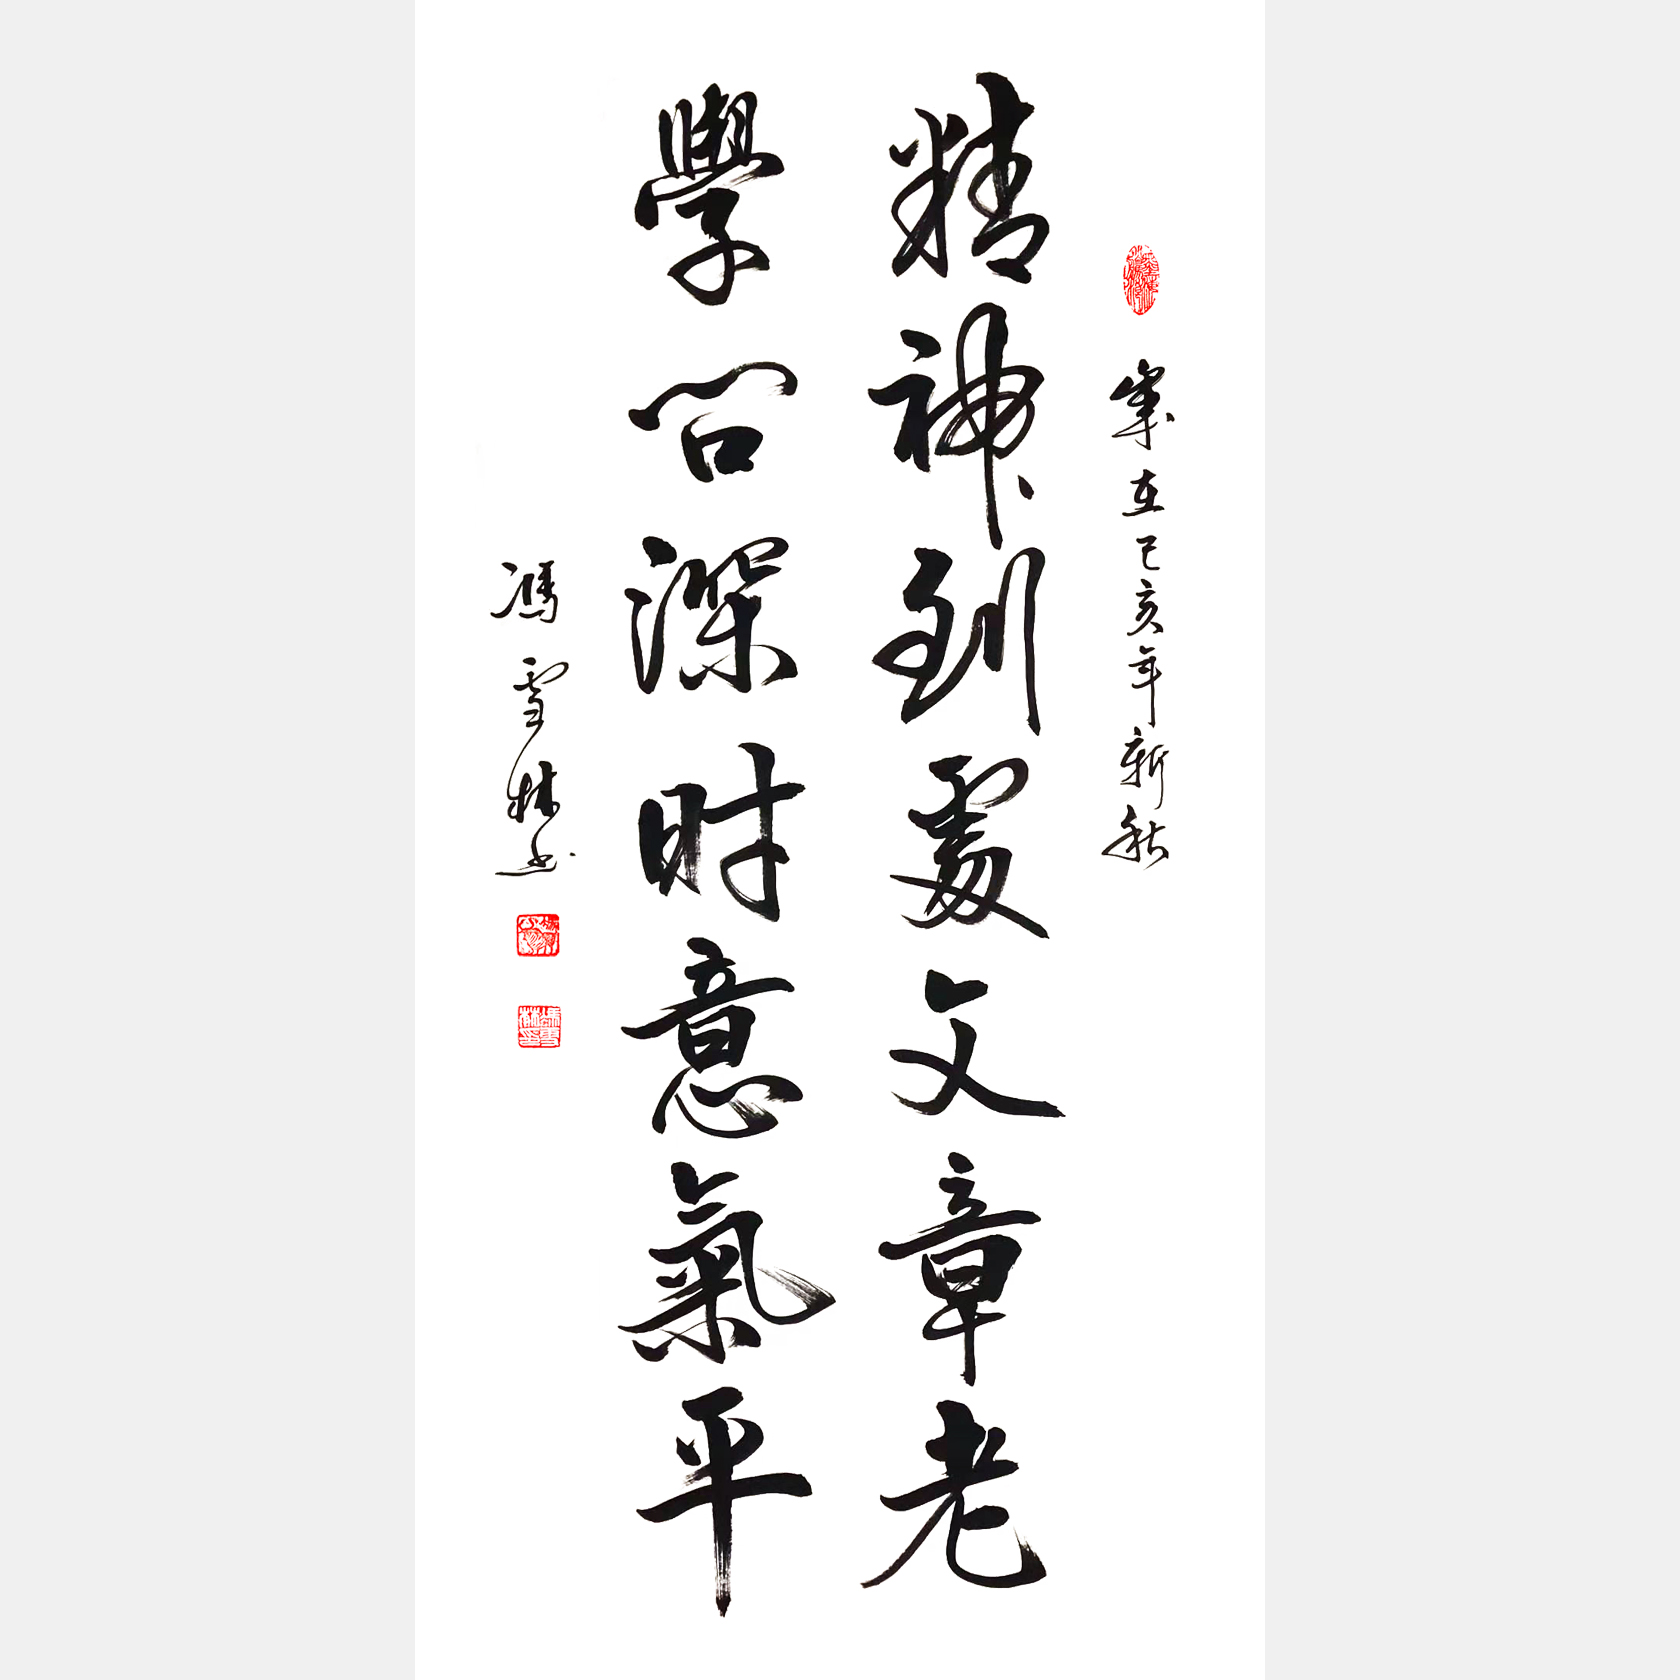 歲在己亥年新秋
精神到處文章老
學問深時意氣平
馮雪林書